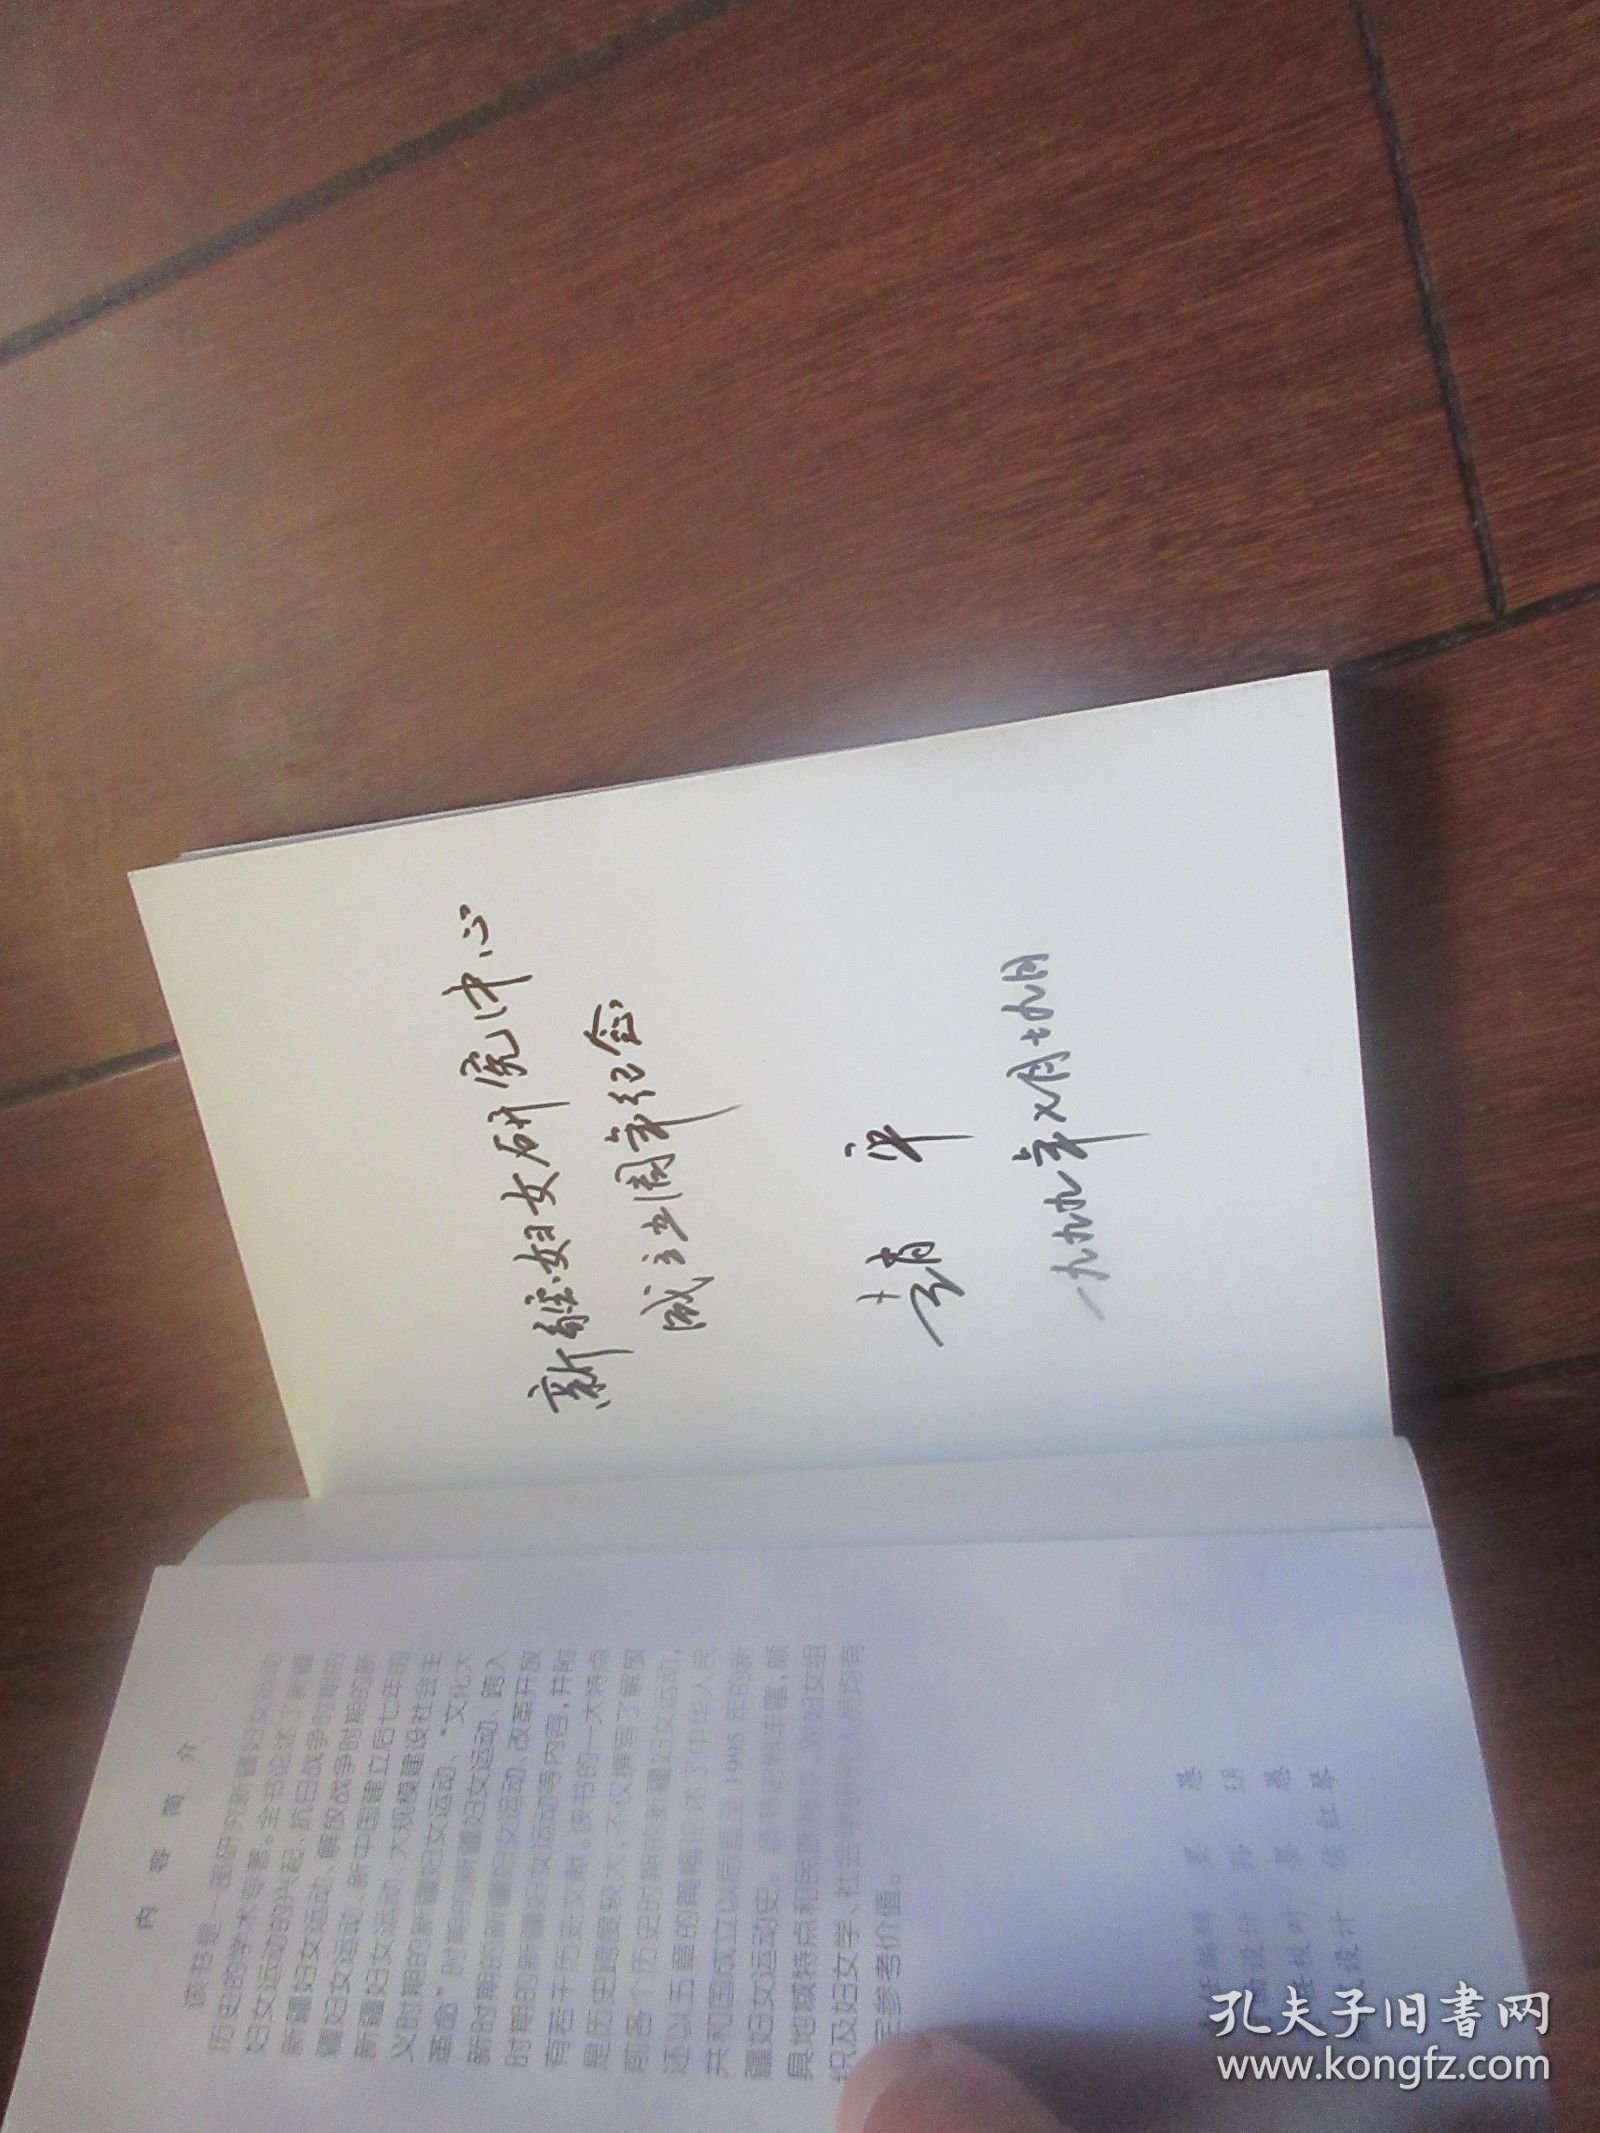 新疆妇女研究中心
成立周年纪念
一九九九年七月十九日
内容简介
该书是一部研究新疆妇女运动
历史的学术专著。全书论述了新疆
妇女运动的兴起、抗日战争时期的
新疆妇女运动、解放战争时期的新
疆妇女运动、新中国建立后七年的
新疆妇女运动、大规模建设社会主
义时期的新疆妇女运动、“文化大
革命”时期的新疆妇女运动、跨入
新时期的新疆妇女运动、改革开放
时期的新疆妇女运动等内容,并附
有若干历史文献。该书的一大特点
是历史跨度较大,不仅撰写了解放
前各个历史时期的新疆妇女运动,
还以五章的篇幅论述了中华人民
共和国成立以后直至1995年的新
疆妇女运动史。
具地域特点和民族特点,对妇女组
织及妇女学、社会学研究人员均有
参考价值。
孔夫子旧书网
www.kongfz.com